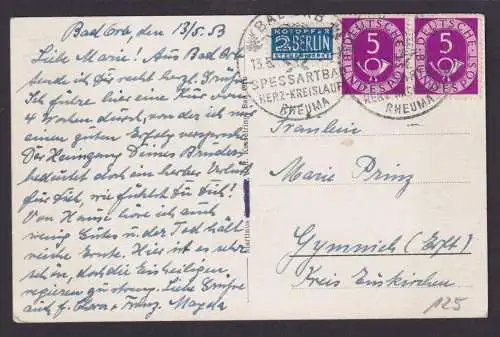 Bad Orb, den 13/5. 53
Liebe Marie! Aus Bad Orb
sende ich Dir recht herzl. Grüße
Ich führe hier eine Kur von
4 Wochen durch, von der ich mir
einen guten Erfolg verspreche
Der Heimgang Deines Bruders
bedeutet doch ein herber Verlust
für Dich, wie fühlst du Dich?
Von Hause höre ich auch
wenig Gutes u. der Tod hält
reiche Ernte. Hier ist es sehr
schön, doch die Eisheiligen
regieren zu streng. Liebe Grüße
auch f. Franz. Magda
NOTOPFER
2 BERLIN
STEUERMARKE
BAD ORB
13.5.
SPESSARTBAD
HERZ-KREISLAUF
RHEUMA
5
DEUTSCHE
BUNDESPOST
5
DEUTSCHE
BUNDESPOST
RHEUMA
Fräulein
Marie Prinz
Gymnich (Erft)
Kreis Euskirchen
p25